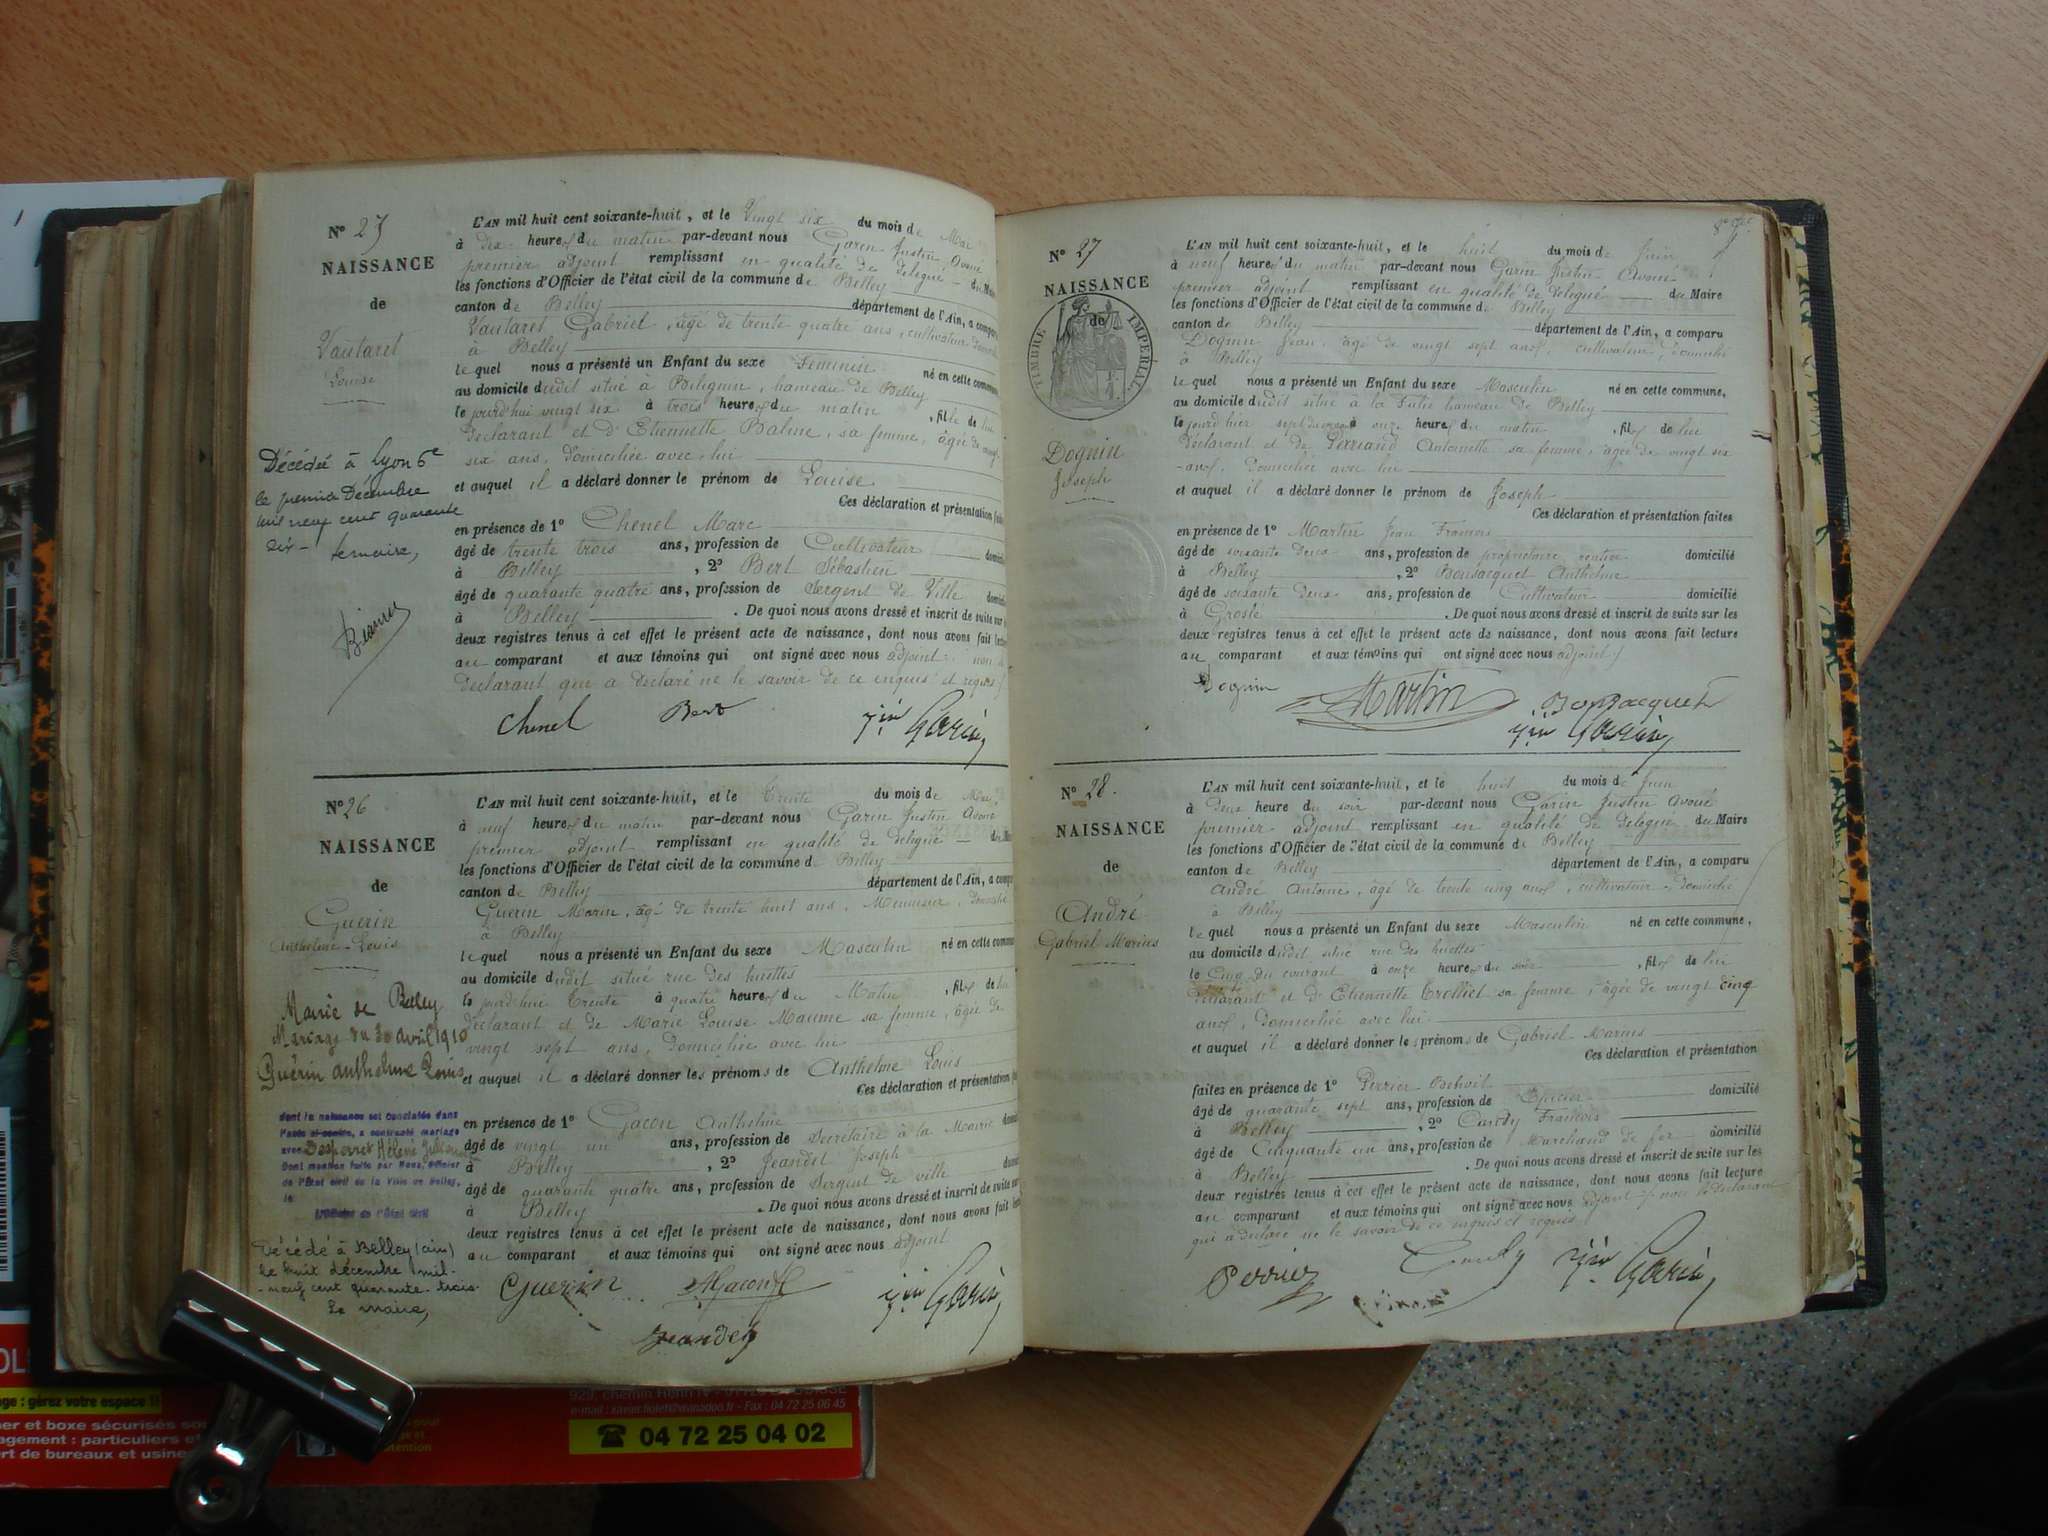 N° 25
NAISSANCE
de
Vautaret
Louise
Décédée à Lyon 6e
le premier Décembre
mil neuf cent quarante
six -
L'AN mil huit cent soixante-huit, et le Vingt six du mois de Mai
à dix heures du matin par-devant nous Garin Justin, Avoué
premier adjoint remplissant en qualité de délégué du Maire
les fonctions d'Officier de l'état civil de la commune de Belley
canton de Belley département de l'Ain, a comparu
Vautaret Gabriel, âgé de trente quatre ans, cultivateur, domicilié
à Belley
le quel nous a présenté un Enfant du sexe Féminin né en cette commune
au domicile dudit situé à Billignin, hameau de Belley
le jourd'hui vingt six à trois heures du matin, fille de lui
déclarant et d'Etiennette Balme, sa femme, âgée de vingt
six ans, domiciliée avec lui
et auquel il a déclaré donner le prénom de Louise
Ces déclaration et présentation faites
en présence de 1° Chenel Marc
âgé de trente trois ans, profession de Cultivateur domicilié
à Belley, 2° Bert Sébastien
âgé de quarante quatre ans, profession de Sergent de Ville domicilié
à Belley. De quoi nous avons dressé et inscrit de suite sur
deux registres tenus à cet effet le présent acte de naissance, dont nous avons fait lecture
au comparant et aux témoins qui ont signé avec nous adjoint, non le
déclarant que a déclaré ne le savoir de ce enquis et requis
Chenel Bert Jin Garin
N° 26
NAISSANCE
de
Guerin
Anthelme-Louis
Mairie de Belley
Mariage du 30 avril 1910
Guérin anthelme Louis
dont la naissance est constatée dans
l'acte ci-contre, a contracté mariage
avec Desperret Hélène
Dont mention faite par Nous, Officier
de l'État civil de la Ville de Belley,
le
L'Officier de l'État civil
Décédé à Belley (ain)
le huit décembre mil-
-neuf cent quarante-trois-
Le maire,
L'AN mil huit cent soixante-huit, et le trente du mois de Mai,
à neuf heures du matin par-devant nous Garin Justin Avoué
premier adjoint remplissant en qualité de délégué du Maire
les fonctions d'Officier de l'état civil de la commune de Belley
canton de Belley département de l'Ain, a comparu
Guerin Marin, âgé de trente huit ans, Menuisier, domicilié
à Belley
le quel nous a présenté un Enfant du sexe Masculin né en cette commune
au domicile dudit situé rue des huettes
le jourd'hui trente à quatre heures du Matin, fils de lui
déclarant et de Marie Louise Maume sa femme, âgée de
vingt sept ans, domiciliée avec lui
et auquel il a déclaré donner les prénoms de Anthelme Louis
Ces déclaration et présentation
en présence de 1° Gacon Anthelme
âgé de vingt un ans, profession de Secrétaire à la Mairie
à Belley, 2° Jeandet Joseph
âgé de quarante quatre ans, profession de Sergent de ville
à Belley. De quoi nous avons dressé et inscrit de suite sur
deux registres tenus à cet effet le présent acte de naissance, dont nous avons fait
au comparant et aux témoins qui ont signé avec nous adjoint
Guerin AGacon Jin Garin
Jeandet
N° 27
NAISSANCE
de
TIMBRE IMPERIAL
Dognin
Joseph
L'AN mil huit cent soixante-huit, et le huit du mois de Juin
à neuf heures du matin par-devant nous Garin Justin Avoué
premier adjoint remplissant en qualité de délégué du Maire
les fonctions d'Officier de l'état civil de la commune de Belley
canton de Belley département de l'Ain, a comparu
Dognin Jean, âgé de vingt sept ans, cultivateur, domicilié
à Belley
le quel nous a présenté un Enfant du sexe Masculin né en cette commune,
au domicile dudit situé à la hameau de Belley
le jourd'hier sept du à onze heures du matin, fils de lui
déclarant et de Perriand Antoinette sa femme, âgée de vingt six
-ans, domiciliée avec lui
et auquel il a déclaré donner le prénom de Joseph
Ces déclaration et présentation faites
en présence de 1° Martin Jean François
âgé de soixante deux ans, profession de propriétaire rentier domicilié
à Belley, 2° Bonsacquet Anthelme
âgé de soixante deux ans, profession de Cultivateur domicilié
à . De quoi nous avons dressé et inscrit de suite sur les
deux registres tenus à cet effet le présent acte de naissance, dont nous avons fait lecture
au comparant et aux témoins qui ont signé avec nous adjoint
Dognin Martin Bonsacquet
Jin Garin
N° 28.
NAISSANCE
de
André
Gabriel Marius
L'AN mil huit cent soixante-huit, et le huit du mois de Juin
à deux heure du soir par-devant nous Garin Justin Avoué
premier adjoint remplissant en qualité de délégué du Maire
les fonctions d'Officier de l'état civil de la commune de Belley
canton de Belley département de l'Ain, a comparu
André Antoine, âgé de trente cinq ans, cultivateur, domicilié
à Belley
le quel nous a présenté un Enfant du sexe Masculin né en cette commune,
au domicile dudit situé rue des huettes
le Cinq du courant à onze heures du soir, fils de lui
déclarant et d'Etiennette Trolliet sa femme, âgée de vingt cinq
ans, domiciliée avec lui.
et auquel il a déclaré donner les prénoms de Gabriel Marius
Ces déclaration et présentation
faites en présence de 1° Perrier domicilié
âgé de quarante sept ans, profession de Epicier
à Belley, 2° Cardy François
âgé de Cinquante un ans, profession de Marchand de fer domicilié
à Belley. De quoi nous avons dressé et inscrit de suite sur les
deux registres tenus à cet effet le présent acte de naissance, dont nous avons fait lecture
au comparant et aux témoins qui ont signé avec nous adjoint, non le déclarant
qui a déclaré ne le savoir de ce enquis et requis
Perrier Cardy Jin Garin
: gérez votre espace !!
et boxe sécurisés
: particuliers et
de bureaux et
e-mail : Fax : 04 72 25 06 45
☎ 04 72 25 04 02